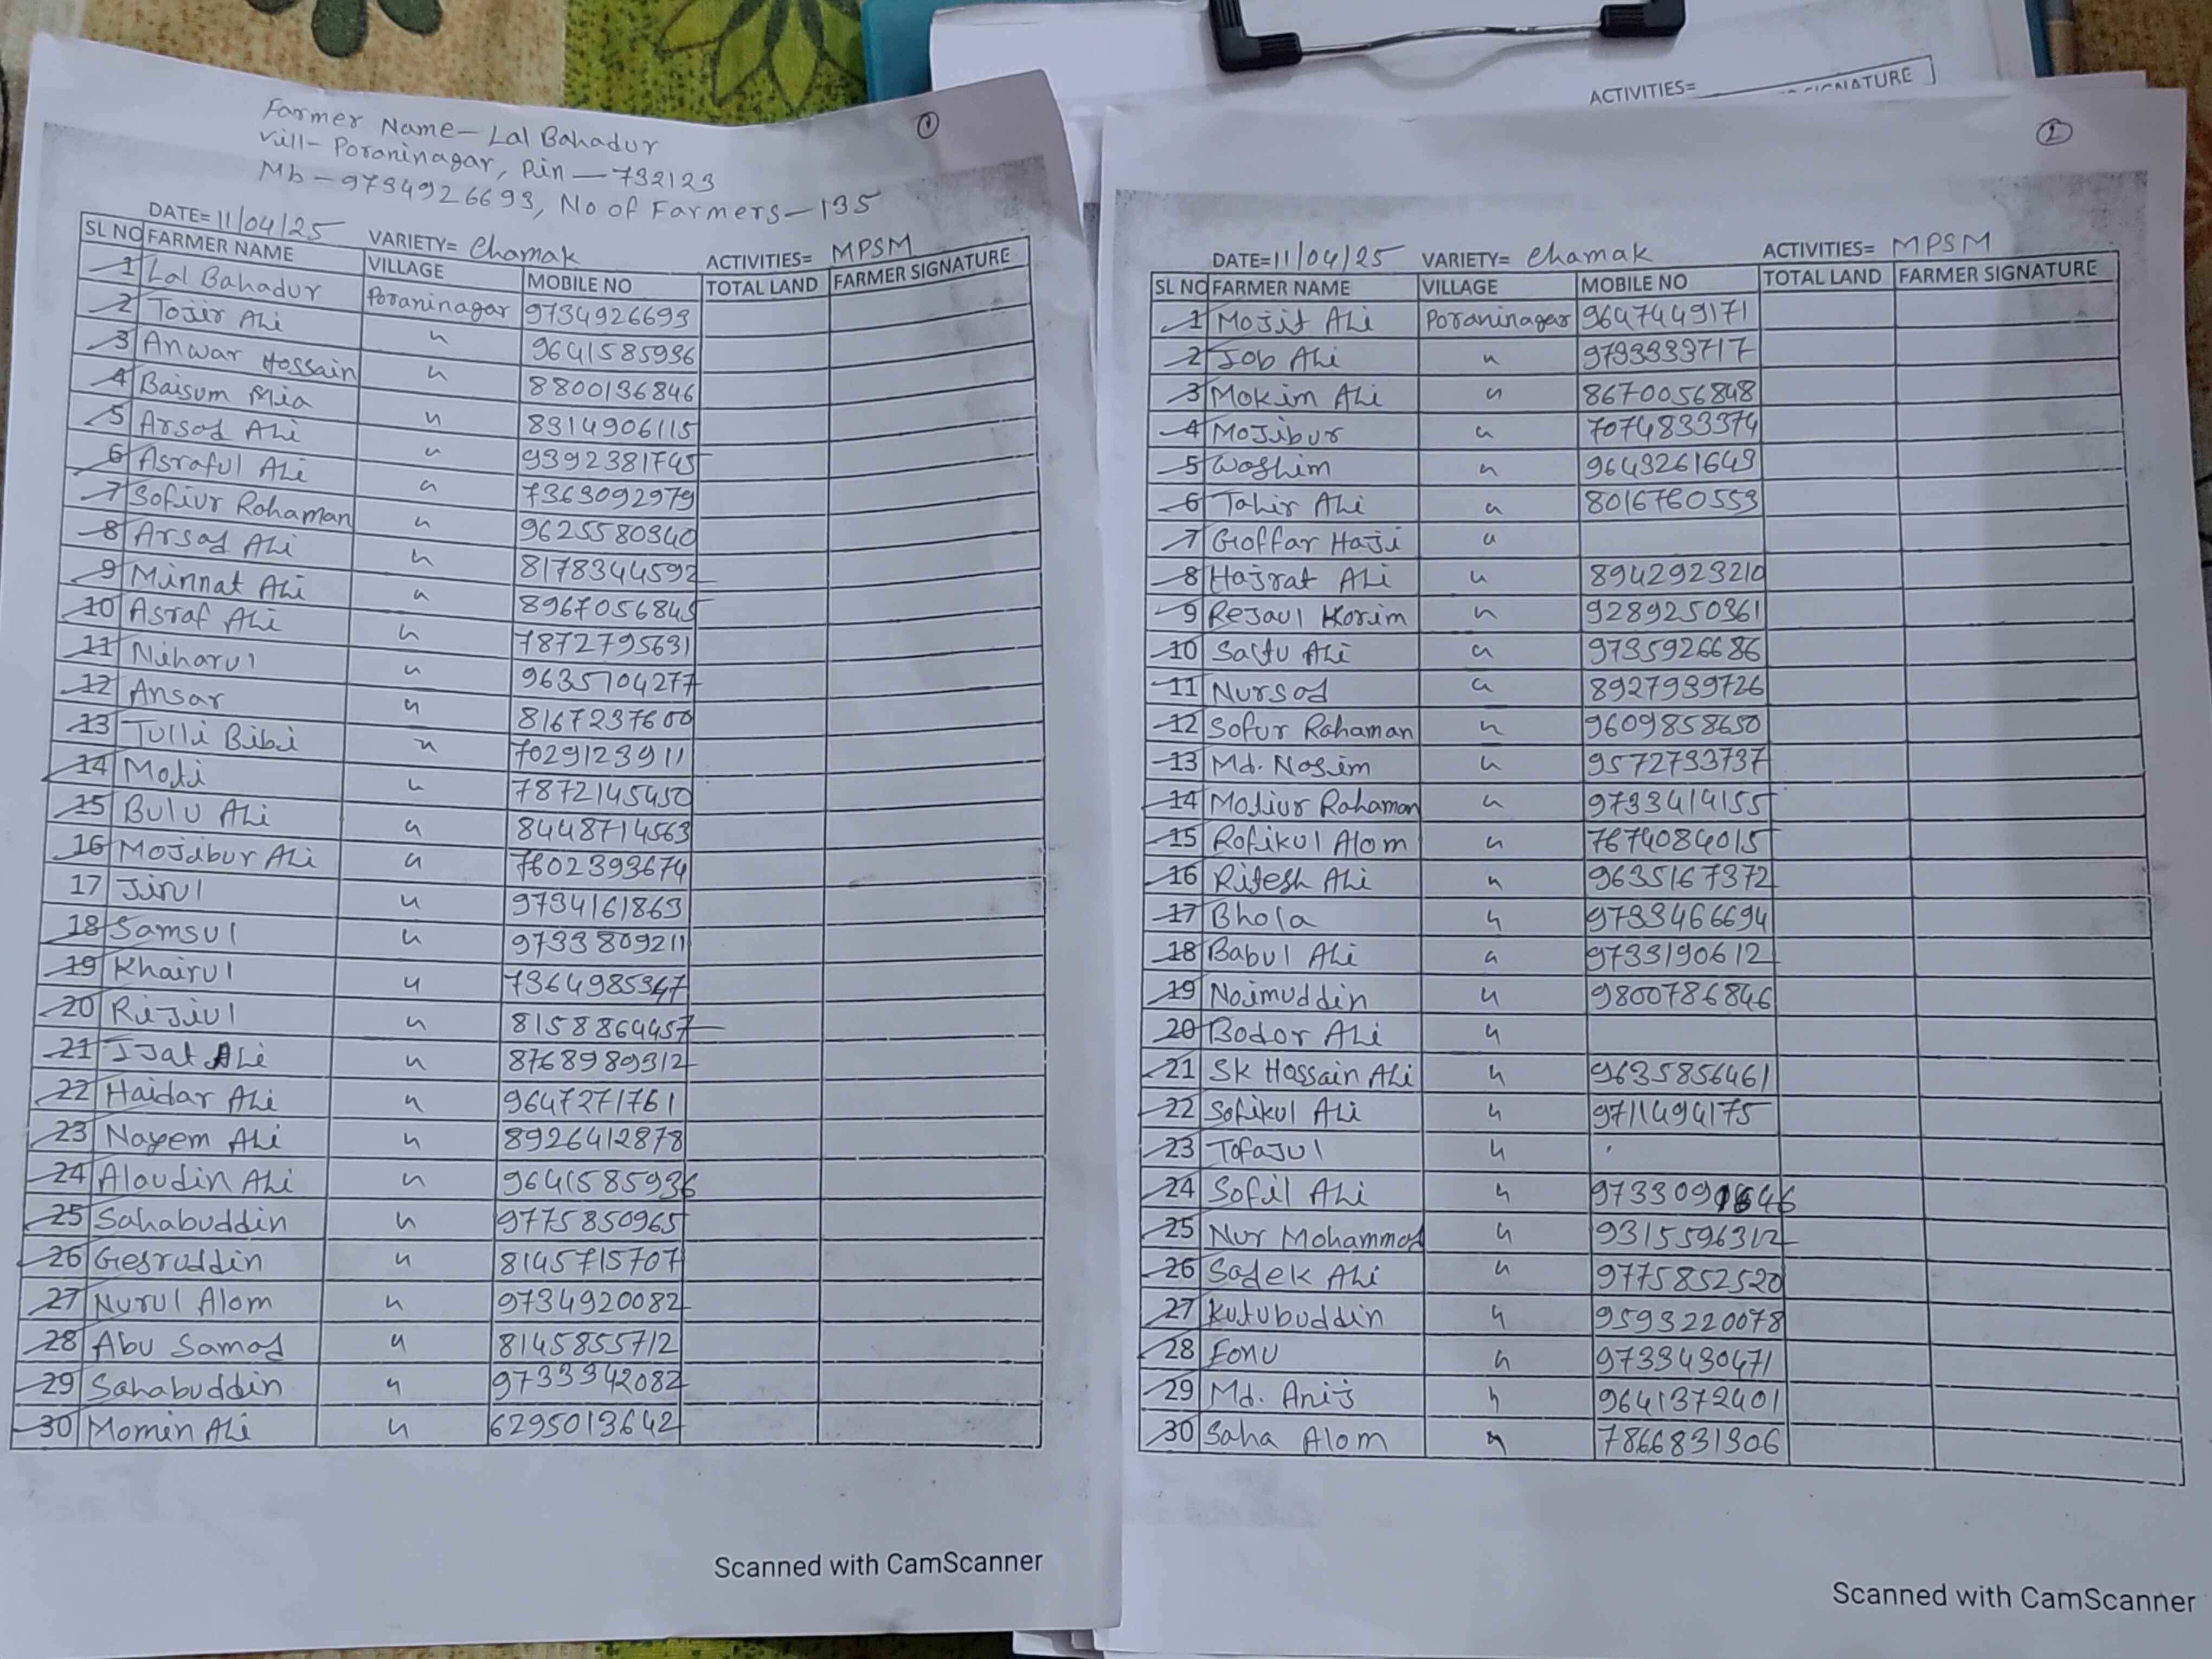 Farmer Name- Lal Bahadur
Vill- Poraninagar, Pin-732123
Mb-9734926693, No of Farmers-135
1
DATE= 11/04/25 VARIETY= Chamak ACTIVITIES= MPSM
SL NO FARMER NAME VILLAGE MOBILE NO TOTAL LAND FARMER SIGNATURE
1 Lal Bahadur Poraninagar 9734926693
2 Tojir Ali " 9641585936
3 Anwar Hossain " 8800136846
4 Baisum Mia " 8314906115
5 Arsad Ali " 9392381745
6 Asraful Ali " 7363092979
7 Sofiur Rahaman " 9625580340
8 Arsad Ali " 8178344592
9 Minnat Ali " 8967056845
10 Asraf Ali " 7872795631
11 Niharul " 9635704277
12 Ansar " 8167237600
13 Tulli Bibi " 7029123911
14 Moti " 7872145450
15 Bulu Ali " 8448714563
16 Mojibur Ali " 7602393674
17 Jirul " 9734161863
18 Samsul " 9733809211
19 Khairul " 7364985347
20 Rijiul " 8158864457
21 Ijat Ali " 8768989312
22 Haidar Ali " 9647271761
23 Nayem Ali " 8926412878
24 Alaudin Ali " 9641585936
25 Sahabuddin " 9775850965
26 Gesruddin " 8145715707
27 Nurul Alom " 9734920082
28 Abu Samad " 8145855712
29 Sahabuddin " 9733342082
30 Momin Ali " 6295013642
Scanned with CamScanner
ACTIVITIES=
SIGNATURE
2
DATE= 11/04/25 VARIETY= Chamak ACTIVITIES= MPSM
SL NO FARMER NAME VILLAGE MOBILE NO TOTAL LAND FARMER SIGNATURE
1 Mojit Ali Poraninagar 9647449171
2 Job Ali " 9793333717
3 Mokim Ali " 8670056848
4 Mojibur " 7074833374
5 Woshim " 9649261649
6 Tahir Ali " 8016760553
7 Goffar Haji "
8 Hajrat Ali " 8942923210
9 Rejaul Korim " 9289250361
10 Saltu Ali " 9735926686
11 Nursad " 8927939726
12 Sofur Rahaman " 9609858650
13 Md. Nosim " 9572733737
14 Motiur Rahaman " 9733414155
15 Rofikul Alom " 7674084015
16 Ritesh Ali " 9635167372
17 Bhola " 9733466694
18 Babul Ali " 9733190612
19 Noimuddin " 9800786846
20 Bodor Ali "
21 SK Hossain Ali " 9635856461
22 Sofikul Ali " 9711494175
23 Tofajul "
24 Sofil Ali "
25 Nur Mohammad " 9315596312
26 Sadek Ali " 9775852520
27 Kutubuddin " 9593220078
28 Fonu " 9733430471
29 Md. Anij " 9641372401
30 Saha Alom " 7866831306
Scanned with CamScanner